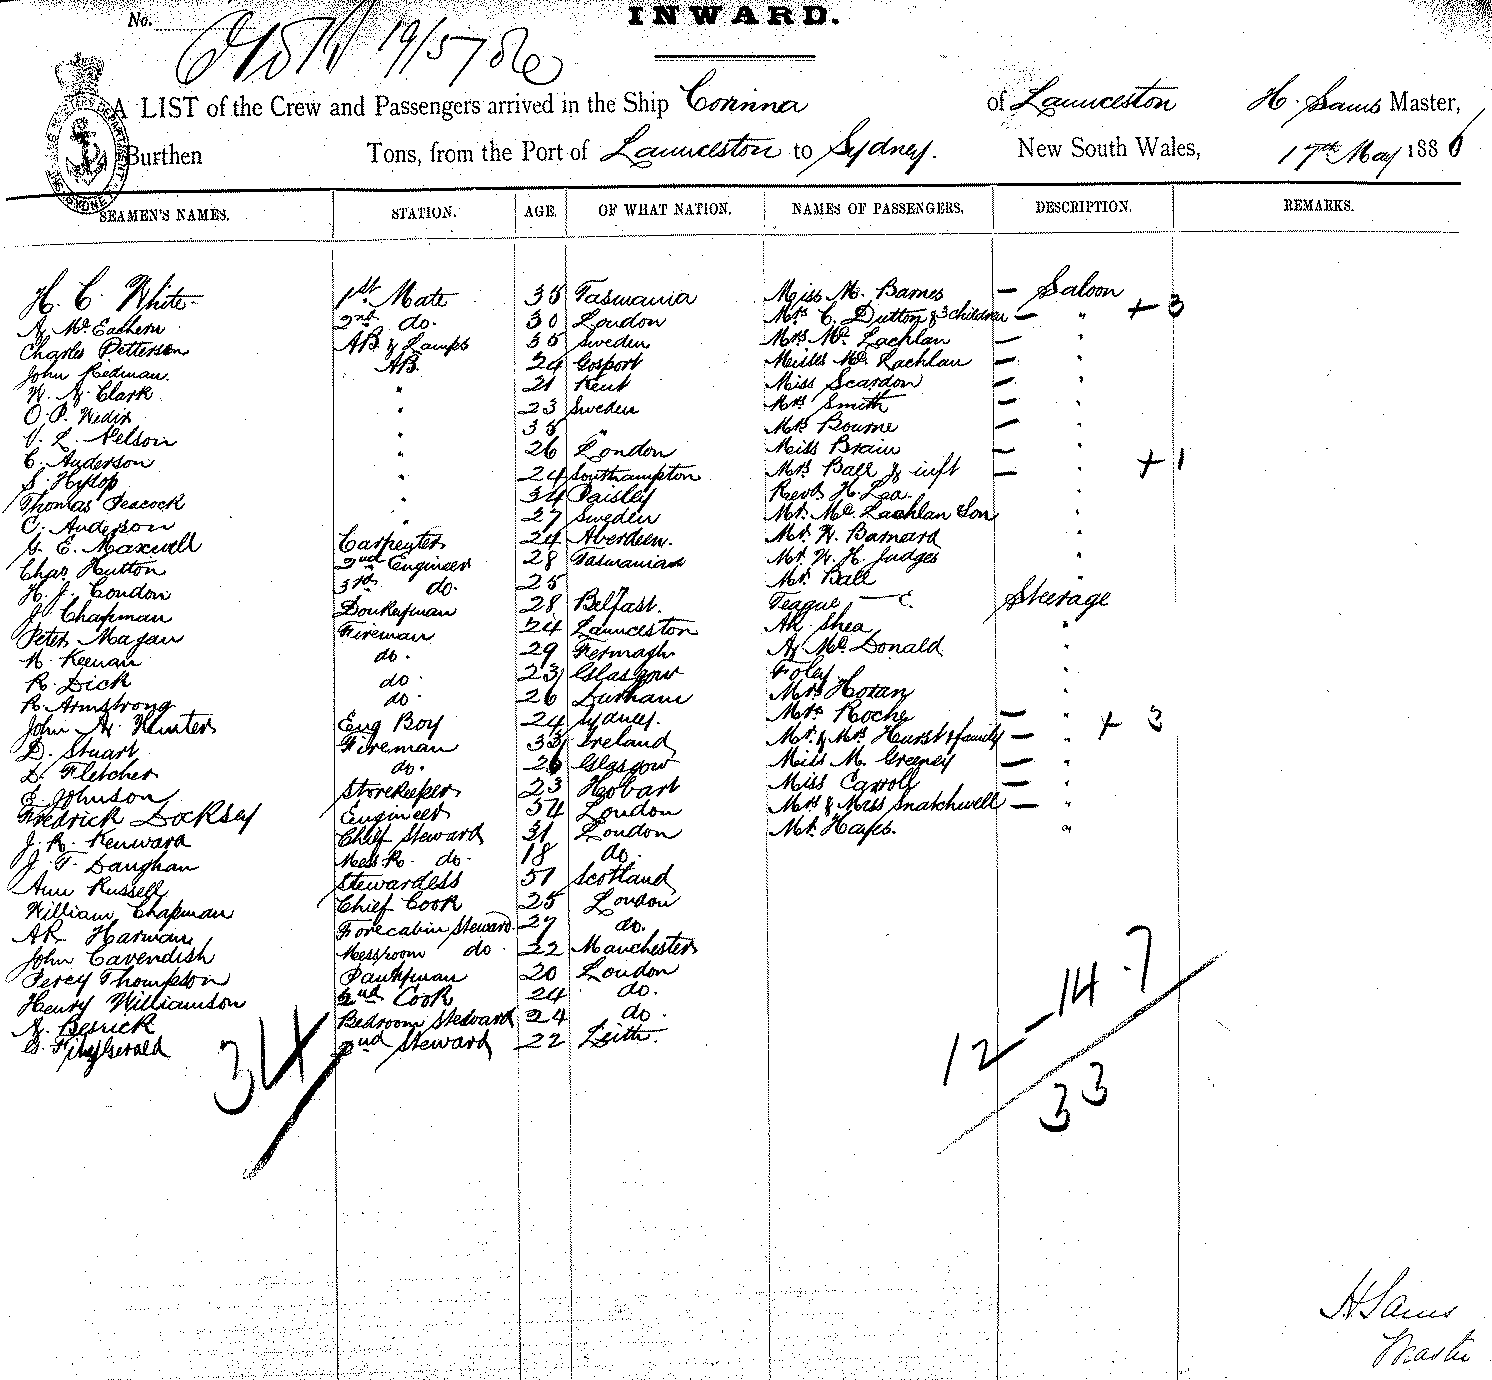 No.
INWARD.
19/5/86
A LIST of the Crew and Passengers arrived in the Ship Corinna of Launceston H. Sams Master,
Burthen Tons, from the Port of Launceston to Sydney. New South Wales, 17th May 1886
SEAMEN'S NAMES. STATION. AGE. OF WHAT NATION. NAMES OF PASSENGERS. DESCRIPTION. REMARKS.
H. C. White 1st Mate 35 Tasmania Miss M. Barnes — Saloon
A. McEachern 2nd do. 30 London Mrs C. Dutton & 3 children — " + 3
Charles Petterson AB & Lamps 35 Sweden Mrs Mc Lachlan — "
John Redman. AB. 24 Gosport Misses Mc Lachlan — "
W. A. Clark " 21 Kent Miss Scardon — "
O. P. " 23 Sweden Mrs Smith — "
V. L. Nelson " 35 " Mrs Bourne — "
C. Anderson " 26 London Miss Brain — "
S. Hyslop " 24 Southampton Mrs Ball & inft — " + 1
Thomas Peacock " 34 Paisley Revd H. Lea. "
C. Anderson " 27 Sweden Mr. Mc Lachlan & Son "
G. E. Maxwell Carpenter 24 Aberdeen. Mr. W. Barnard "
Chas Hutton 2nd Engineer 28 Tasmanian Mr. W. H. Judges "
H. J. Condon 3rd do. 25 " Mr. Ball "
J. Chapman Donkeyman 28 Belfast. Teague — C. Steerage
Peter Magan Fireman 24 Launceston Ah Shea "
M. Keenan do. 29 Fermagh A. McDonald "
R. Dick do. 23 Glasgow Foley "
R. Armstrong do. 26 Durham Mrs Horan "
John W. Hunter Eng Boy 24 Sydney. Mrs Roche — "
D. Stuart Fireman 33 Ireland Mr. & Mrs Hurst & family — " + 3
D. Fletcher do. 26 Glasgow Miss M. Greeney — "
E. Johnson Storekeeper 23 Hobart Miss Carroll — "
Fredrick Docksey Engineer 54 London Mrs & Miss Snatchwell — "
J. R. Kenward Chief Steward 31 London Mr. Hayes. "
J. T. Daughan Mess R. do. 18 do.
Ann Russell Stewardess 51 Scotland
William Chapman Chief Cook 25 London
AR Harman Forecabin Steward 27 do.
John Cavendish Messroom do. 22 Manchester
Percy Thompson Pantryman 20 London
Henry Williamson 2nd Cook 24 do.
A. Berrick Bedroom Steward 24 do.
G. FitzGerald 2nd Steward 22 Leith.
34
12 — 14 . 7
33
H Sams
Master